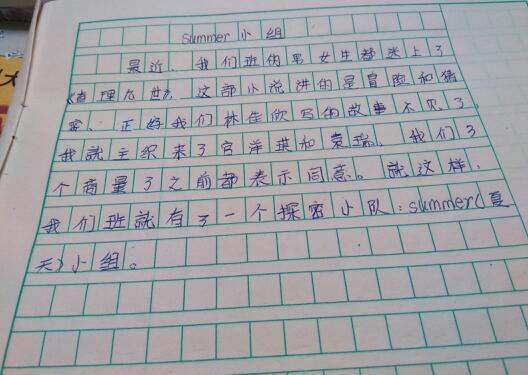 summer小组
最近,我们班的男女生都迷上了
《查理九世》,这部小说讲的是冒险和猜
密、正好我们林佳欣写的故事不见了,
我就主织来了官洋琪和袁瑞、我们3
个商量了之前都表示同意。就这样,
我们班就有了一个探密小队:summer(夏
天)小组。